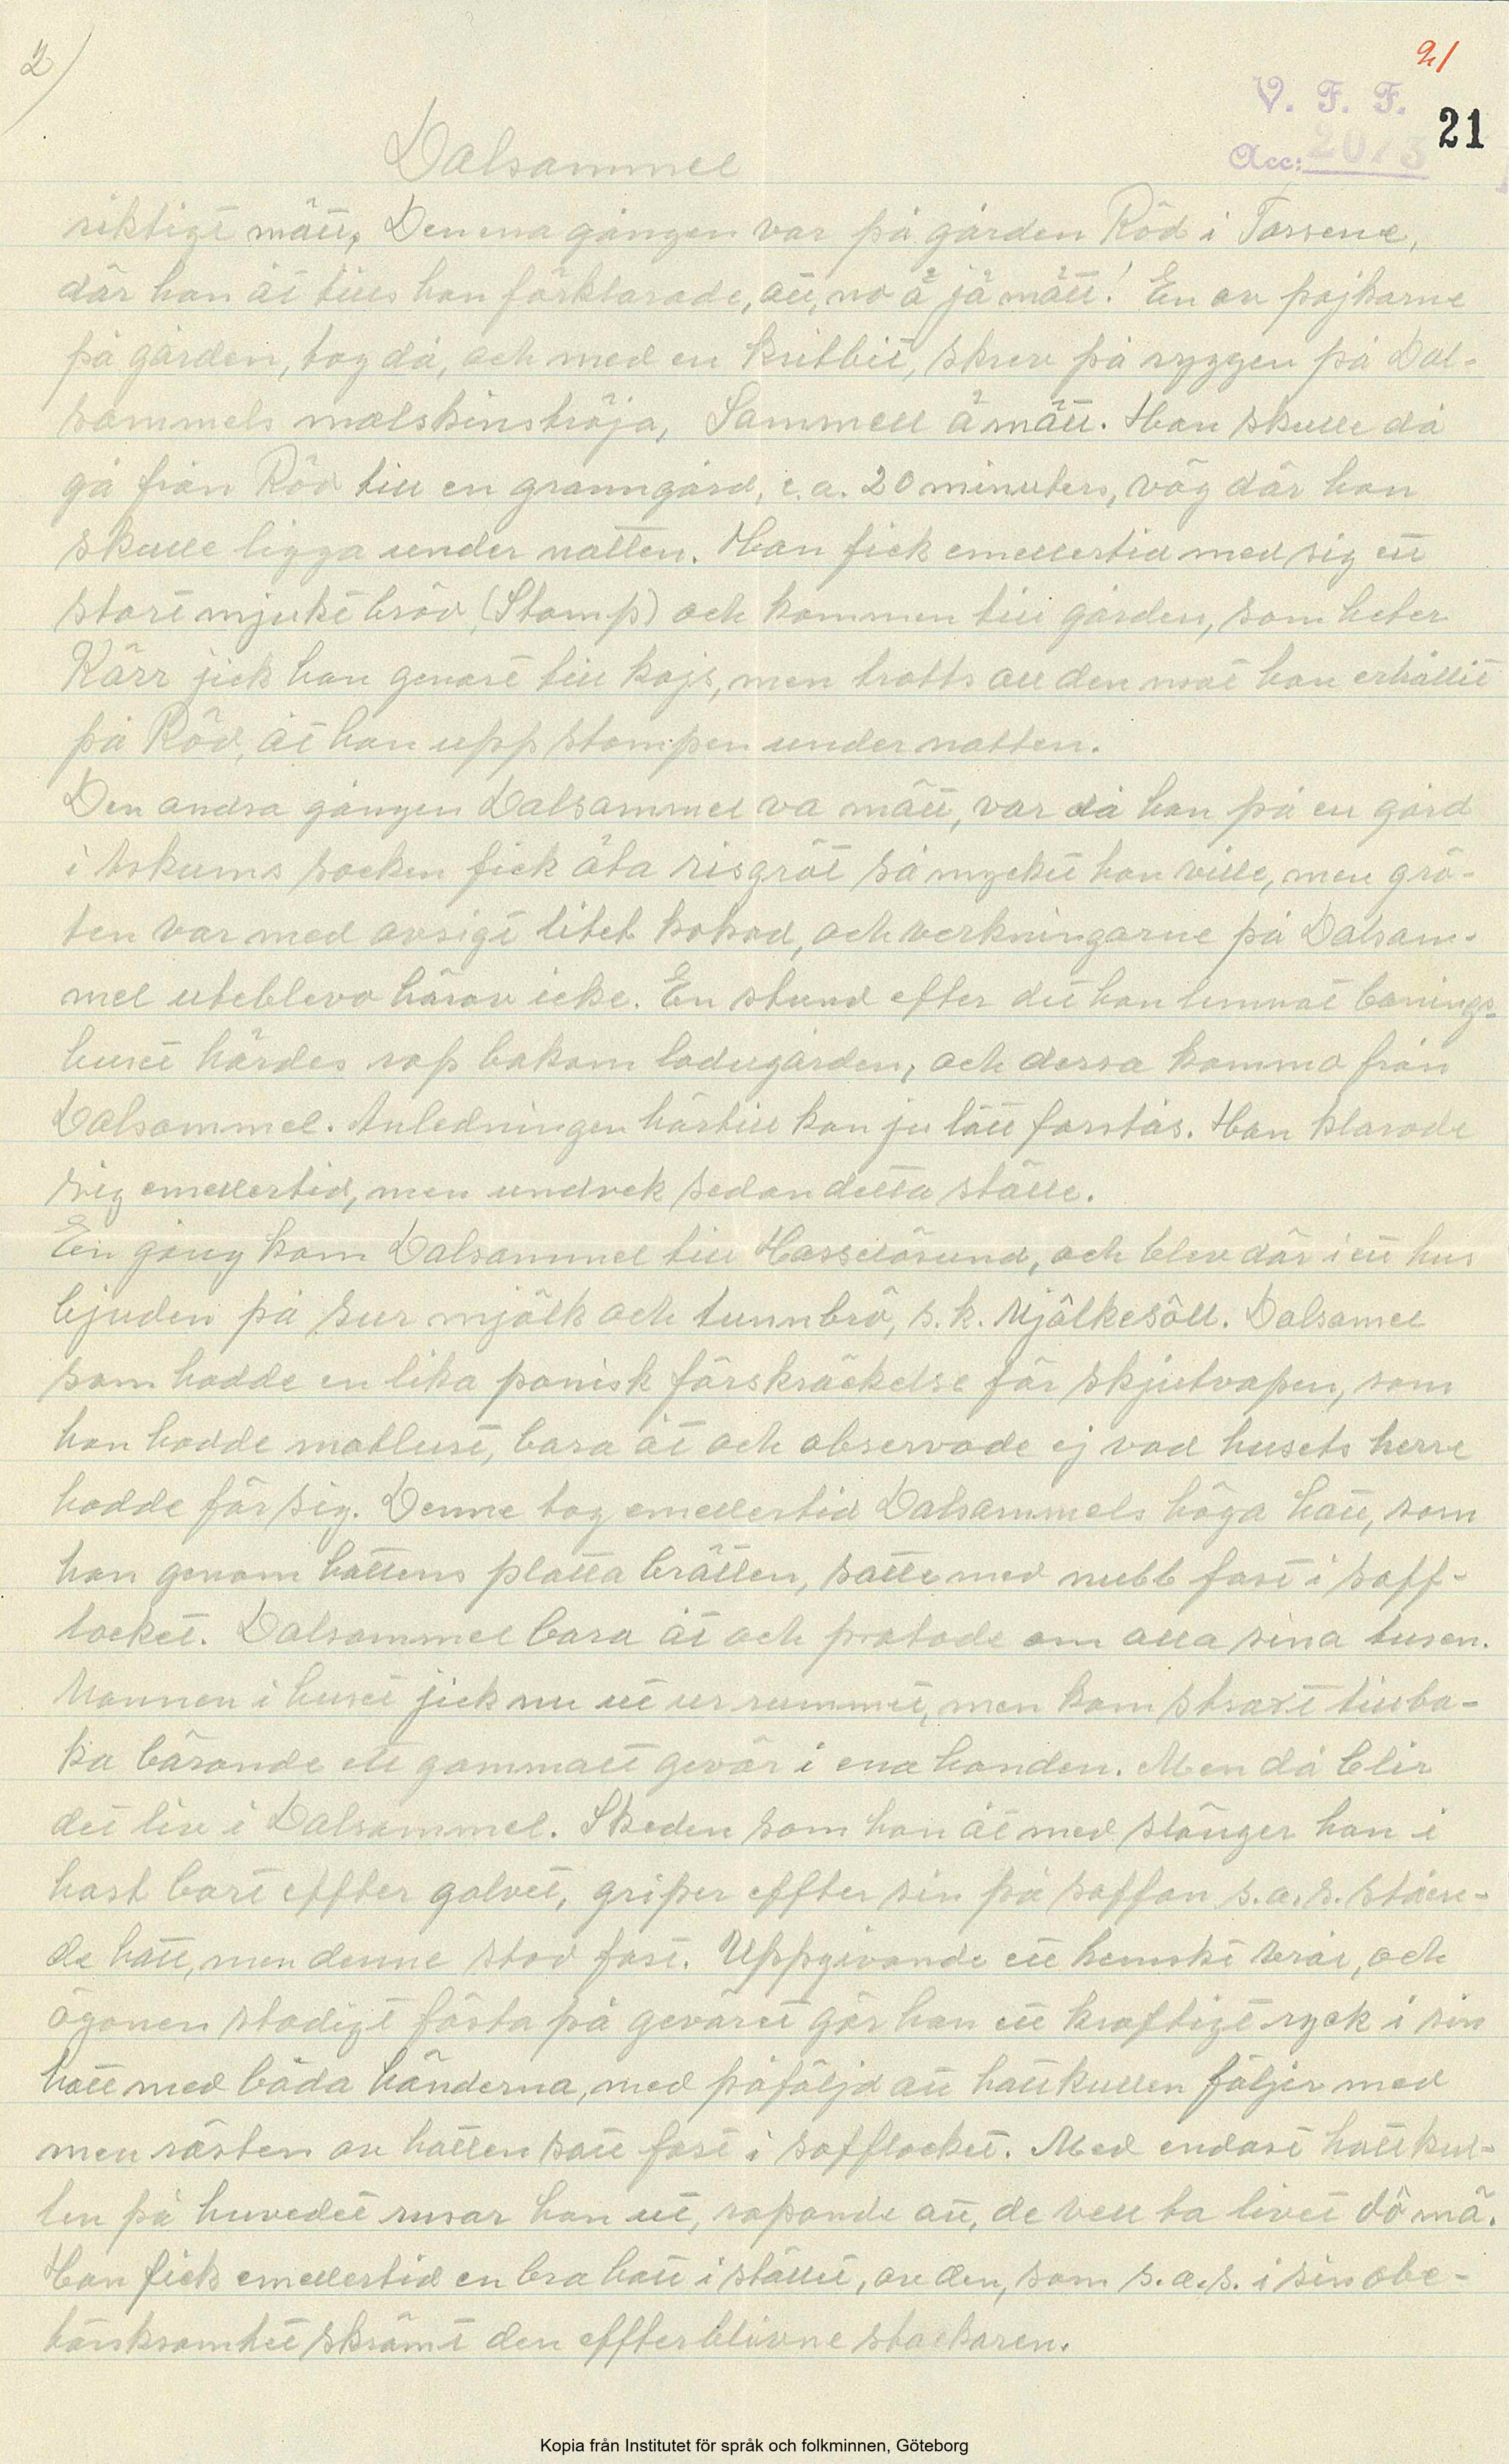 2)
21
V. F. F.
21
Acc: 2073
Dalsammel
riktigt mätt, Den ena gången var på gården Röd i Tossene,
där han åt tills han förklarade, att, no ä jä mätt! En av pojkarne
på gården, tog då, och med en kritbit, skrev på ryggen på Dal-
sammels malskinströja, Sammell ä mätt. Han skulle då
gå från Röd till en granngård, c.a. 20 minuters, väg där han
skulle ligga under natten. Han fick emellertid med sig ett
stort mjukt bröd, (Stomp) och kommen till gården, som heter
Kärr jick han genast till kojs, men trotts all den mat han erhållit
på Röd, åt han upp stompen under natten.
Den andra gången Dalsammel va mätt, var då han på en gård
i Askums socken fick äta risgröt så mycket han ville, men grö-
ten var med avsigt litet kokad, och verkningarne på Dalsam-
mel uteblevo härav icke. En stund efter det han lemnat bonings-
huset hördes rop bakom ladugården, och dessa kommo från
Dalsammel. Anledningen härtill kan ju lätt forstås. Han klarade
sig emellertid, men undvek sedan detta ställe.
En gång kom Dalsammel till Hasselösund, och blev där i ett hus
bjuden på sur mjölk och tunnbrö, s.k. Mjölkesöll. Dalsamel
som hadde en lika panisk förskräckelse för skjutvapen, som
han hadde matlust, bara åt och observade ej vad husets herre
hadde för sig. Denne tog emellertid Dalsammels höga hatt, som
han genom hattens platta brätten, satte med nubb fast i soff-
locket. Dalsammel bara åt och pratade om alla sina tusen.
Mannen i huset jick nu ut ur rummet, men kom straxt tillba-
ka bärande ett gammalt gevär i ena handen. Men då blir
det liv i Dalsammel. Skeden som han åt med slänger han i
hast bort effter golvet, griper effter sin på soffan s.a.s. ståen-
de hatt, men denne stod fast. Uppgivande ett hemskt vrål, och
ögonen stadigt fästa på geväret gör han ett kraftigt ryck i sin
hatt med båda händerna, med påföljd att hattkullen följer med
men rästen av hatten satt fast i sofflocket. Med endast hattkul-
len på huvudet rusar han ut, ropande att, de vell ta livet dö mä.
Han fick emellertid en bra hatt i stället, av den, som s.a.s. i sin obe-
tänksamhet skrämt den effterblivne stackaren.
Kopia från Institutet för språk och folkminnen, Göteborg